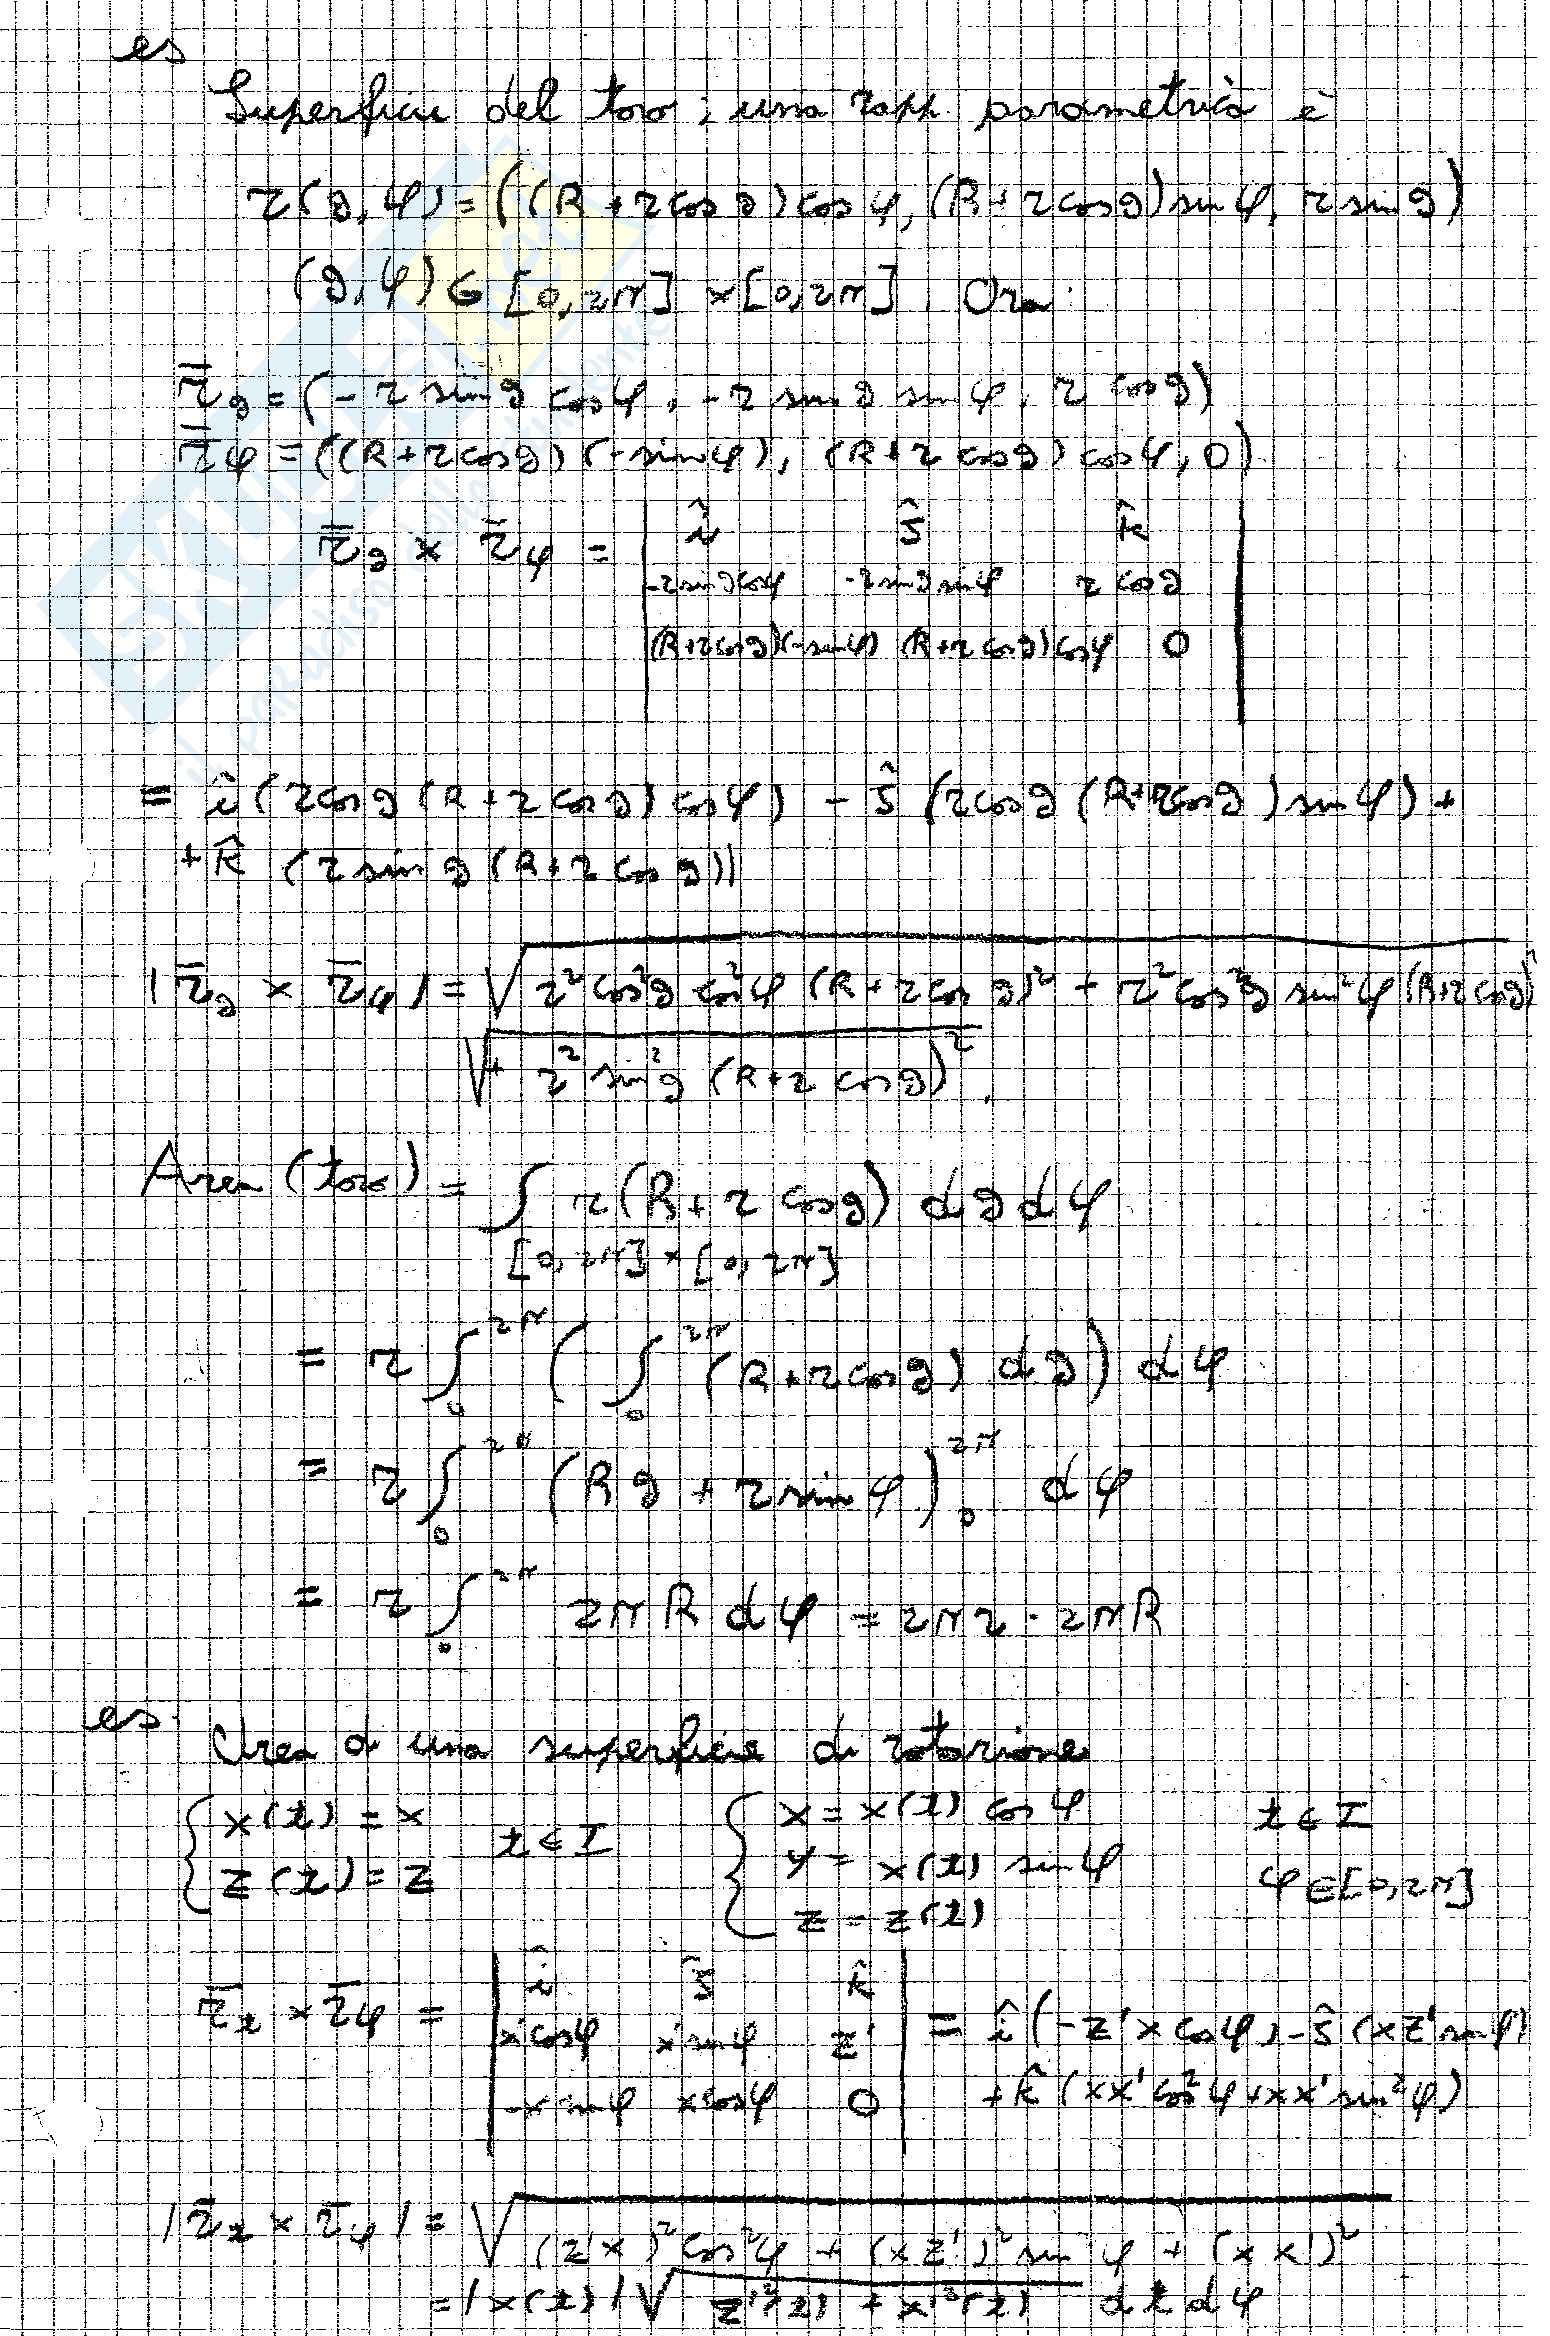 es
Superficie del toro; una rapp. parametrica è
r(ϑ,φ) = ((R+r cosϑ) cosφ, (R+r cosϑ) sinφ, r sinϑ)
(ϑ,φ) ∈ [0,2π] × [0,2π]. Ora:
r̄_ϑ = (-r sinϑ cosφ, -r sinϑ sinφ, r cosϑ)
r̄_φ = ((R+r cosϑ)(-sinφ), (R+r cosϑ) cosφ, 0)
r̄_ϑ × r̄_φ = | î ĵ k̂
-r sinϑ cosφ -r sinϑ sinφ r cosϑ
(R+r cosϑ)(-sinφ) (R+r cosϑ) cosφ 0 |
= î (r cosϑ (R+r cosϑ) cosφ) - ĵ (r cosϑ (R+r cosϑ) sinφ) +
+ k̂ (r sinϑ (R+r cosϑ))
|r̄_ϑ × r̄_φ| = √ r² cos²ϑ cos²φ (R+r cosϑ)² + r² cos²ϑ sin²φ (R+r cosϑ)²
√ + r² sin²ϑ (R+r cosϑ)² .
Area (toro) = ∫ r(R+r cosϑ) dϑ dφ
[0,2π] × [0,2π]
= r ∫₀^2π ( ∫₀^2π (R+r cosϑ) dϑ) dφ
= r ∫₀^2π (Rϑ + r sinφ)₀^2π dφ
= r ∫₀^2π 2πR dφ = 2πr · 2πR
es.
Area di una superficie di rotazione
{ x(t) = x t ∈ I { x = x(t) cosφ t ∈ I
z(t) = z y = x(t) sinφ φ ∈ [0,2π]
z = z(t)
r̄_t × r̄_φ = | î ĵ k̂
x'cosφ x'sinφ z' | = î (-z'x cosφ) - ĵ (xz' sinφ)
-x sinφ x cosφ 0 + k̂ (xx' cos²φ + xx' sin²φ)
|r̄_t × r̄_φ| = √ (z'x)² cos²φ + (xz')² sin φ + (xx')²
= |x(t)| √ z'²(t) + x'²(t) dt dφ